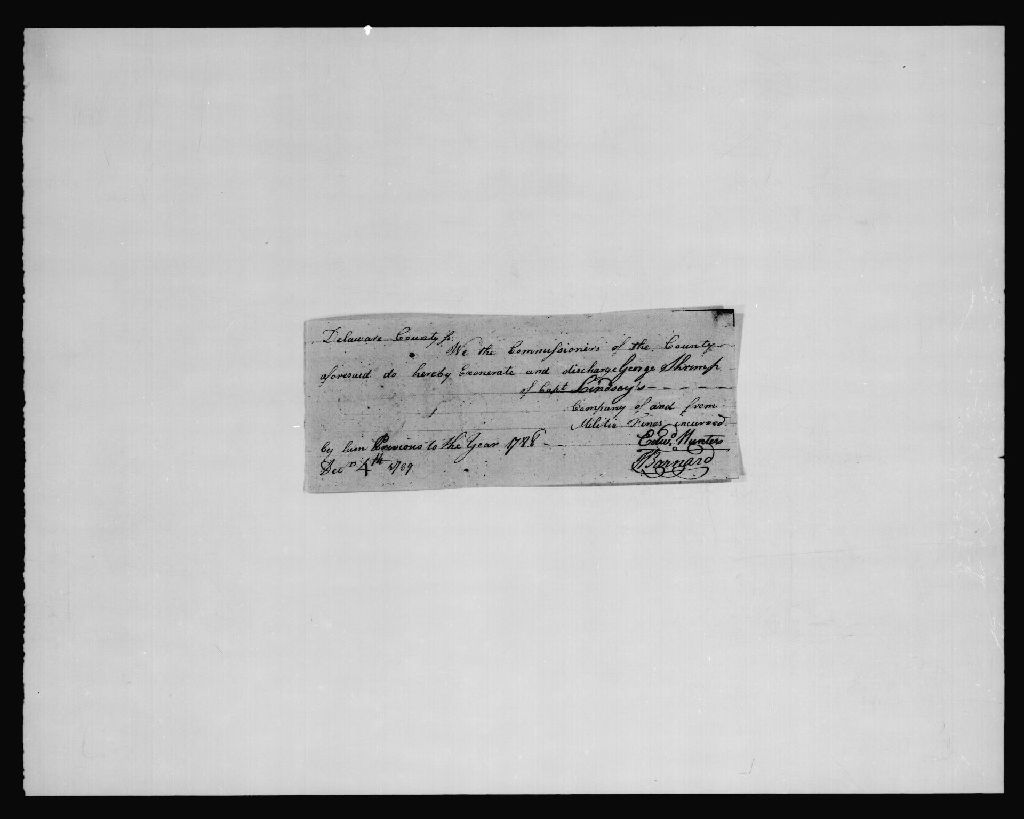 Delaware County ss.
We the Commissioners of the County
aforesaid do hereby Exonerate and discharge George Shrimp
of Capt Lindsay's
Company of and from
Militia Fines incurred
by him Previous to the Year 1788
Edwd Hunter
Decr 4th 1789
Barnard